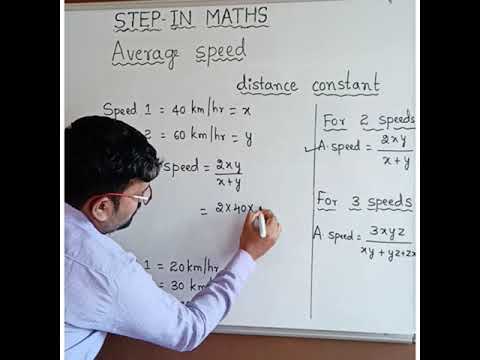 STEP-IN MATHS
Average speed
distance constant
Speed 1 = 40 km/hr = x
2 = 60 km/hr = y
speed = 2xy / x+y
= 2×40×
1 = 20 km/hr
= 30 km/
For 2 speeds
A. speed = 2xy / x+y
For 3 speeds
A. speed = 3xyz / xy+yz+zx